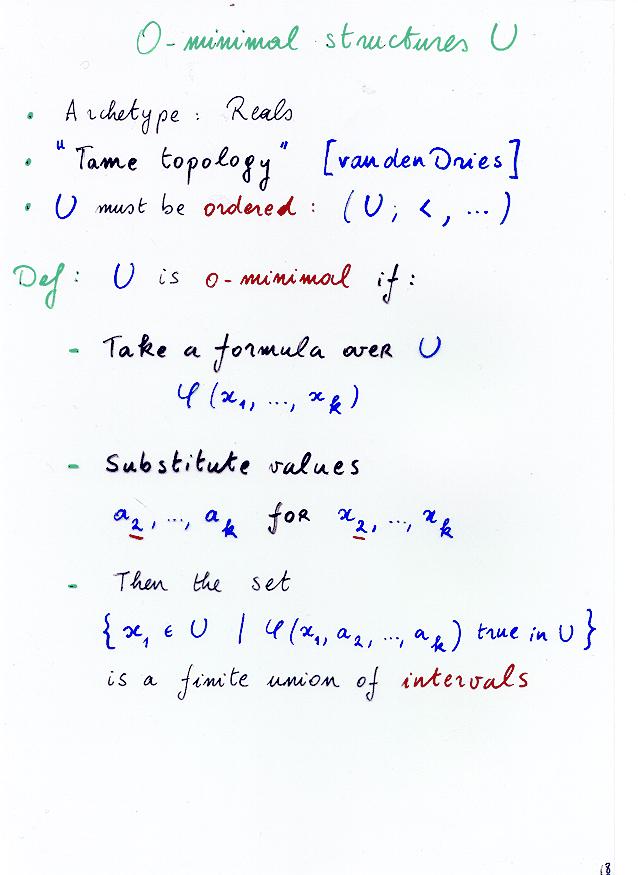 O-minimal structures U
• Archetype: Reals
• "Tame topology" [van den Dries]
• U must be ordered: (U; <, ...)
Def: U is o-minimal if:
- Take a formula over U
φ(x₁, ..., xₖ)
- Substitute values
a₂, ..., aₖ for x₂, ..., xₖ
- Then the set
{x₁ ∈ U | φ(x₁, a₂, ..., aₖ) true in U}
is a finite union of intervals
18